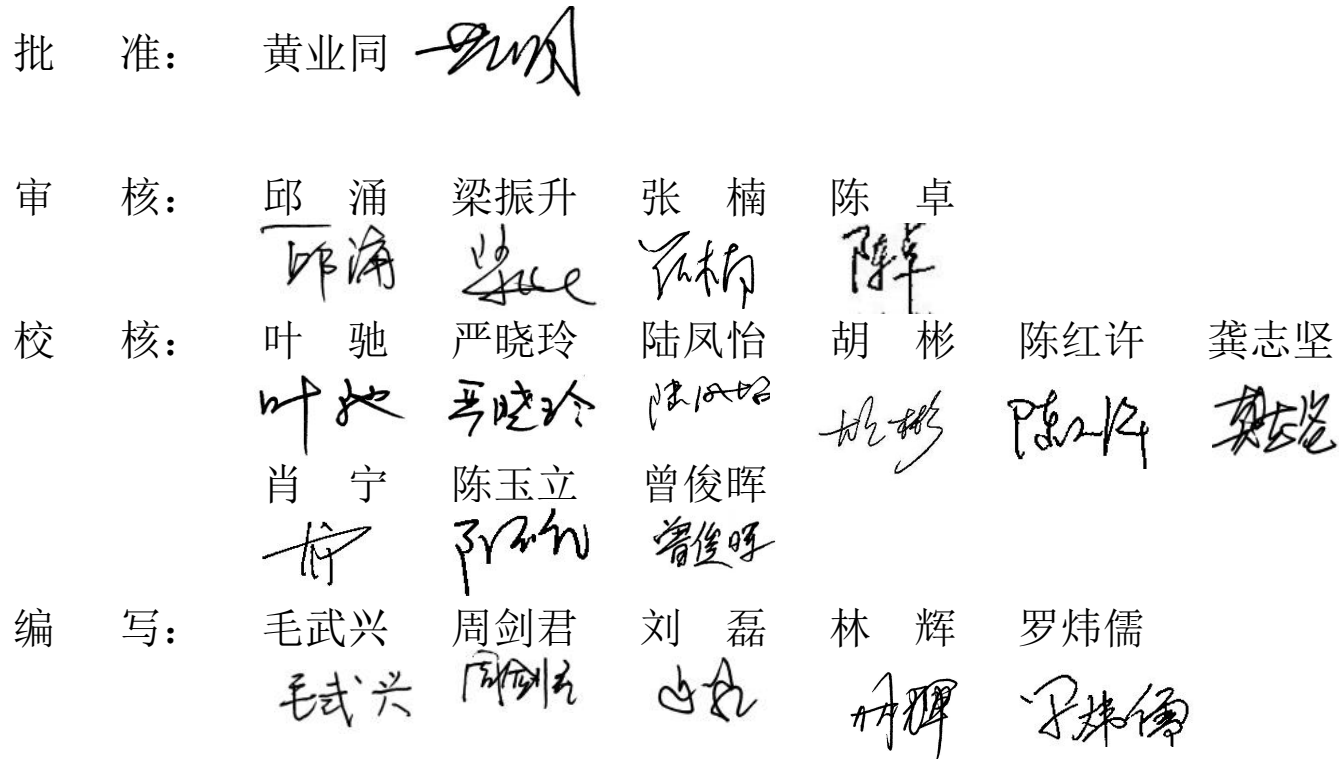 批 准： 黄业同
审 核： 邱 涌 梁振升 张 楠 陈 卓
邱涌 张楠 陈卓
校 核： 叶 驰 严晓玲 陆凤怡 胡 彬 陈红许 龚志坚
叶驰 严晓玲 陆凤怡 胡彬 陈红许 龚志坚
肖 宁 陈玉立 曾俊晖
曾俊晖
编 写： 毛武兴 周剑君 刘 磊 林 辉 罗炜儒
毛武兴 周剑君 林辉 罗炜儒